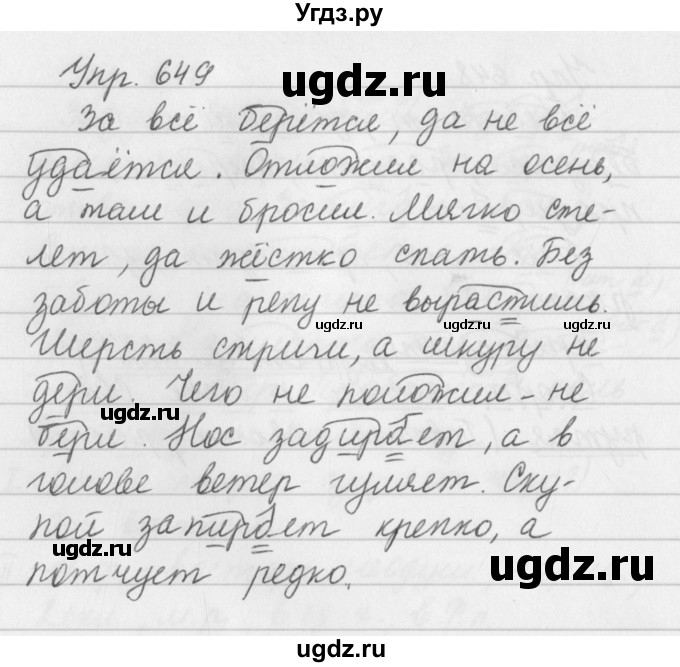 Угдз.ру
Упр. 649
ugdz.ru
За всё берётся, да не всё
удаётся. Отложил на осень,
а там и бросил. Мягко сте-
лет, да жёстко спать. Без
заботы и репу не вырастишь.
ugdz.ru ugdz.ru ugdz.ru
Шерсть стриги, а шкуру не
дери. Чего не положил - не
ugdz.ru
бери. Нос задирает, а в
голове ветер гуляет. Ску-
пой запирает крепко, а
потчует редко.
ugdz.ru
ugdz.ru